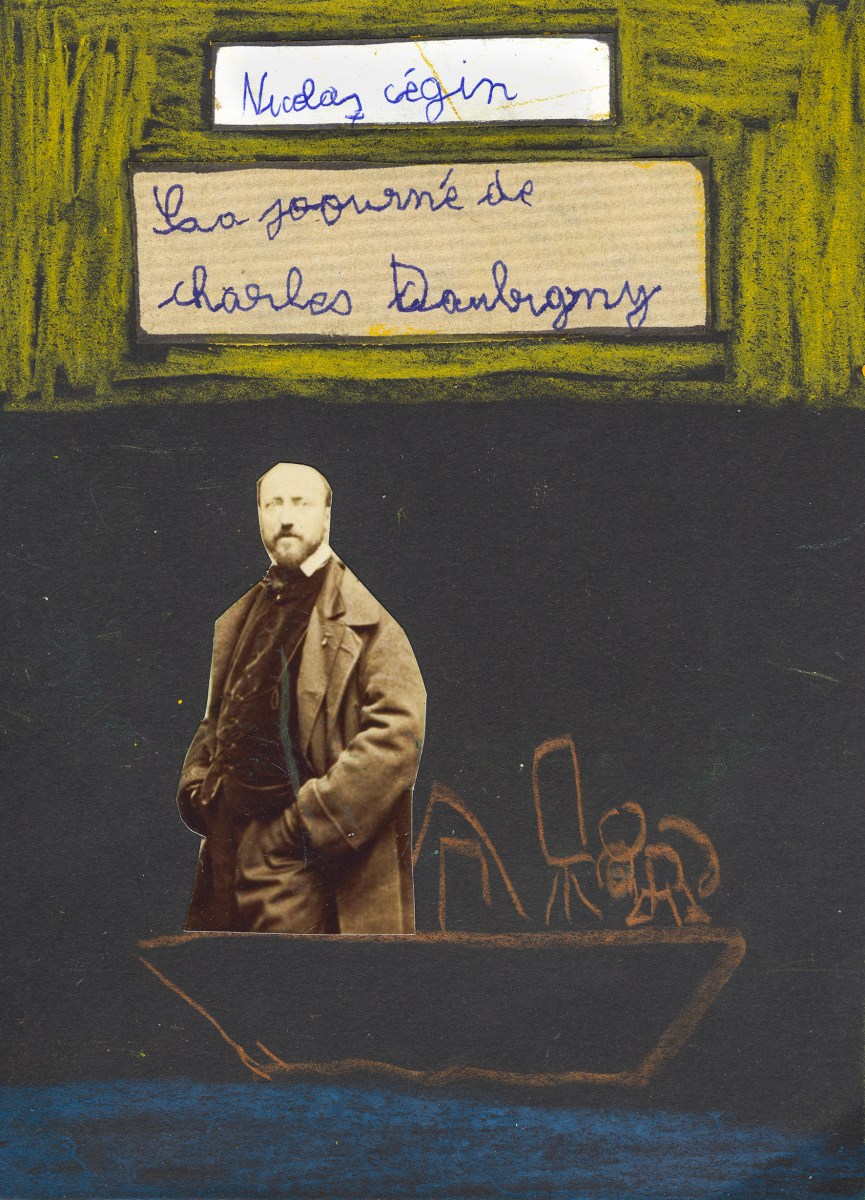 Nicolas cégin
La journé de
charles Daubigny